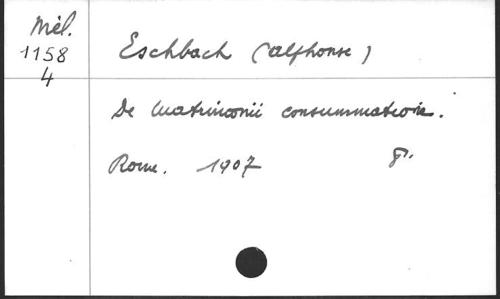 Mél.
1158
4
Eschbach (Alphonse)
De Matrimonii consummatione.
Rome. 1907 8°.